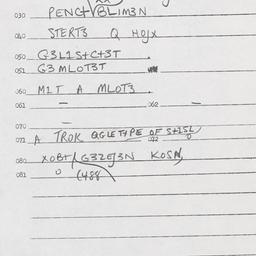 030 PENCTVBLIM3N
040 STERT3 Q HOJX
050 G3L1St+Ct3T .
051 G3 MLOT3T
060 M1T A MLOT3 .
061 — 062 —
070 —
071 A TROK QGLETYPE OF St1SL
072 0
080 XOBT G3ZEJ3N KOSN,
081 0 (488